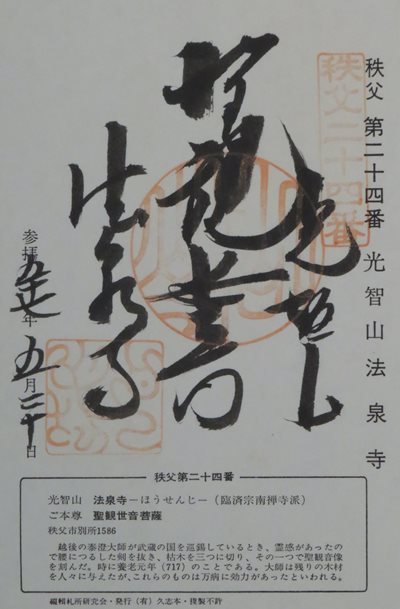 秩父 第二十四番 光智山法泉寺
秩父二十四番
光智山
法泉寺
参拝 五十七年 五月二十日
秩父第二十四番
光智山 法泉寺−ほうせんじ−(臨済宗南禅寺派)
ご本尊 聖観世音菩薩
秩父市別所1586
越後の泰澄大師が武蔵の国を巡錫しているとき、霊感があったの
で腰につるした剣を抜き、枯木を三つに切り、その一つで聖観音像
を刻んだ。時に養老元年(717)のことである。大師は残りの木材
を人々に与えたが、これらのものは万病に効力があったといわれる。
編輯札所研究会・発行(有)久志本・複製不許